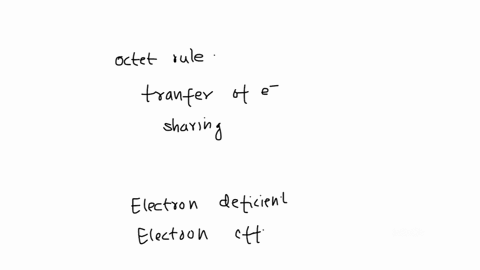 octet rule.
tranfer of e⁻
sharing
Electron deficient
Electron